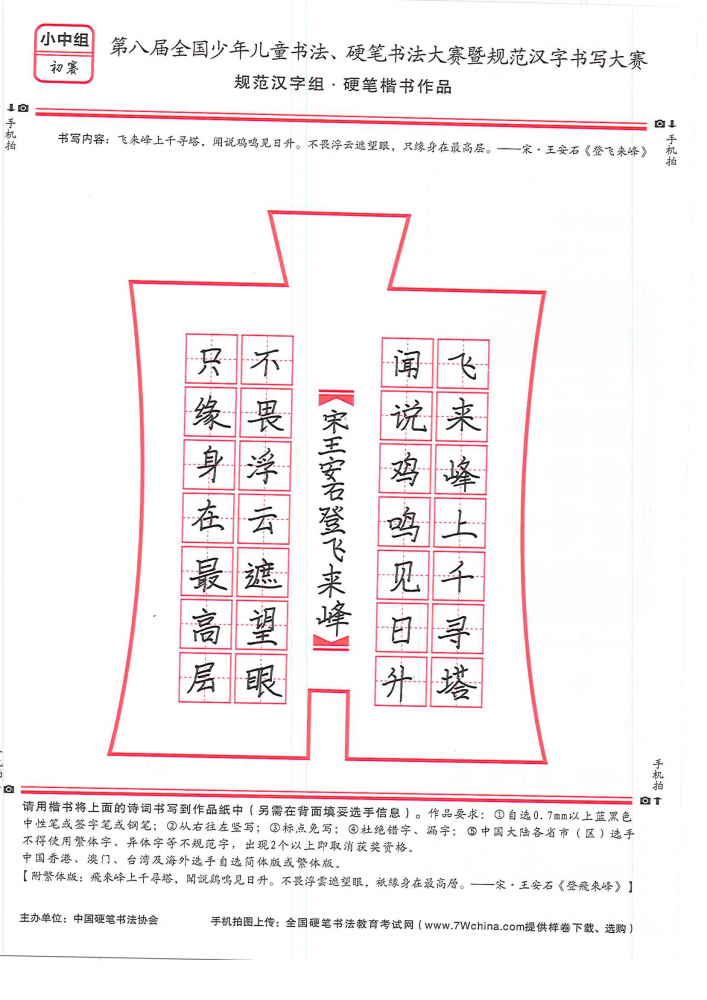 小中组
初赛
第八届全国少年儿童书法、硬笔书法大赛暨规范汉字书写大赛
规范汉字组·硬笔楷书作品
手机拍
手机拍
书写内容：飞来峰上千寻塔，闻说鸡鸣见日升。不畏浮云遮望眼，只缘身在最高层。——宋·王安石《登飞来峰》
飞来峰上千寻塔
闻说鸡鸣见日升
宋王安石登飞来峰
不畏浮云遮望眼
只缘身在最高层
手机拍
请用楷书将上面的诗词书写到作品纸中（另需在背面填妥选手信息）。作品要求：①自选0.7mm以上蓝黑色
中性笔或签字笔或钢笔；②从右往左竖写；③标点免写；④杜绝错字、漏字；⑤中国大陆各省市（区）选手
不得使用繁体字、异体字等不规范字，出现2个以上即取消获奖资格。
中国香港、澳门、台湾及海外选手自选简体版或繁体版。
【附繁体版：飛來峰上千尋塔，聞說鷄鳴見日升。不畏浮雲遮望眼，祇緣身在最高層。——宋·王安石《登飛來峰》】
主办单位：中国硬笔书法协会
手机拍图上传：全国硬笔书法教育考试网（www.7Wchina.com提供样卷下载、选购）